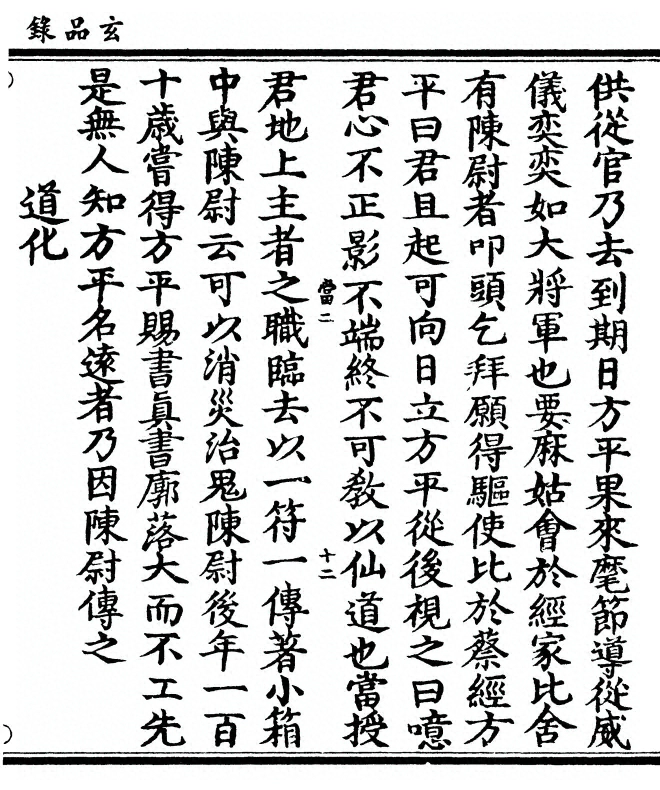 玄品錄
供從官乃去到期日方平果來麾節導從威
儀奕奕如大將軍也要麻姑會於經家比舍
有陳尉者叩頭乞拜願得驅使比於蔡經方
平曰君且起可向日立方平從後視之曰噫
君心不正影不端終不可敎以仙道也當授
當二
十二
君地上主者之職臨去以一符一傳著小箱
中與陳尉云可以消災治鬼陳尉後年一百
十歲嘗得方平賜書眞書廓落大而不工先
是無人知方平名遠者乃因陳尉傳之
道化